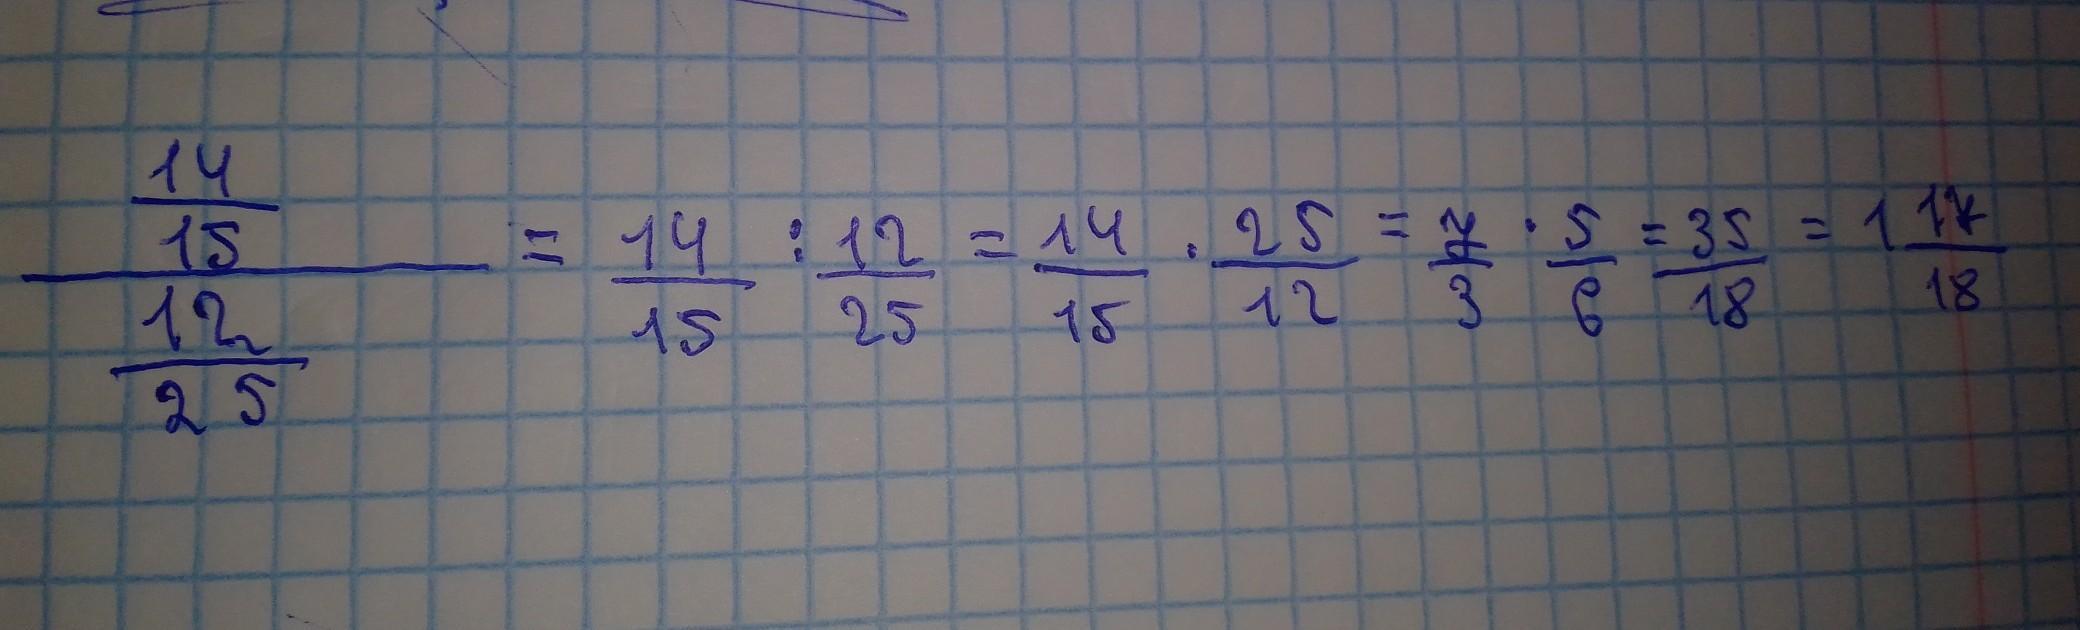 14/15 / 12/25 = 14/15 : 12/25 = 14/15 · 25/12 = 7/3 · 5/6 = 35/18 = 1 17/18